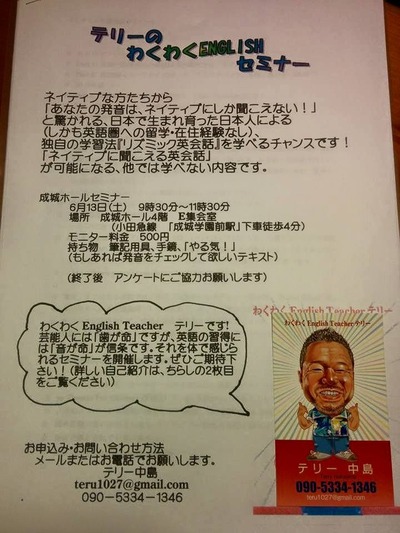 テリーの
わくわくENGLISH
セミナー
ネイティブな方たちから
「あなたの発音は、ネイティブにしか聞こえない！」
と驚かれる、日本で生まれ育った日本人による
（しかも英語圏への留学・在住経験なし）、
独自の学習法『リズミック英会話』を学べるチャンスです！
「ネイティブに聞こえる英会話」
が可能になる、他では学べない内容です。
成城ホールセミナー
6月13日（土） 9時30分～11時30分
場所 成城ホール4階 E集会室
（小田急線 「成城学園前駅」下車徒歩4分）
モニター料金 500円
持ち物 筆記用具、手鏡、「やる気！」
（もしあれば発音をチェックして欲しいテキスト）
（終了後 アンケートにご協力お願いします）
わくわく English Teacher テリーです！
芸能人には「歯が命」ですが、英語の習得に
は「音が命」が信条です。それを体で感じら
れるセミナーを開催します。ぜひご期待下
さい！（詳しい自己紹介は、ちらしの2枚目
をご覧ください）
お申込み・お問い合わせ方法
メールまたはお電話でお願いします。
テリー中島
teru1027@gmail.com
090-5334-1346
わくわく English Teacher テリー
わくわく English Teacher テリー
テリー 中島
090-5334-1346
teru1027@gmail.com